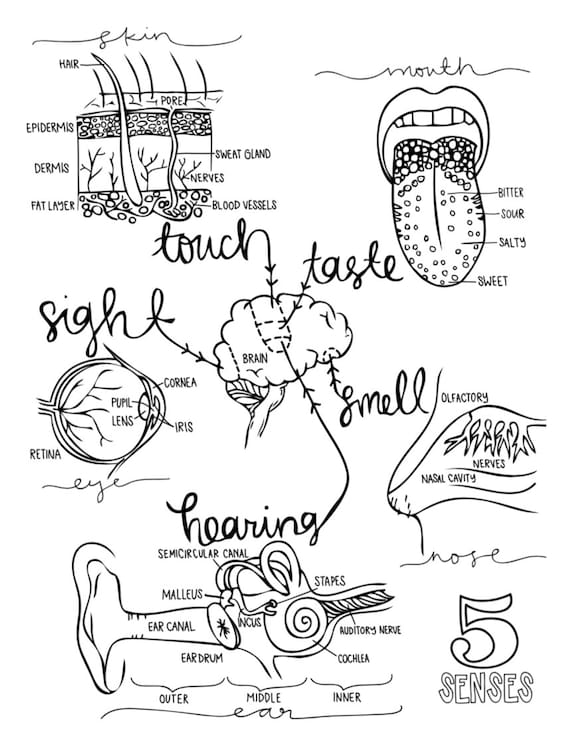 skin
HAIR
PORE
EPIDERMIS
SWEAT GLAND
DERMIS
NERVES
FAT LAYER
BLOOD VESSELS
mouth
BITTER
SOUR
SALTY
SWEET
touch
taste
sight
BRAIN
smell
CORNEA
PUPIL
LENS
IRIS
RETINA
eye
OLFACTORY
NERVES
NASAL CAVITY
nose
hearing
SEMICIRCULAR CANAL
MALLEUS
STAPES
INCUS
EAR CANAL
AUDITORY NERVE
EARDRUM
COCHLEA
OUTER MIDDLE INNER
ear
5
SENSES